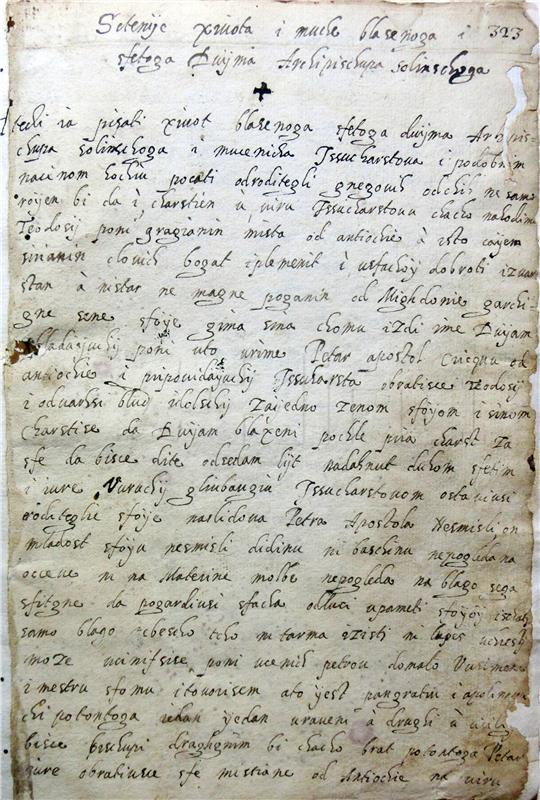 Sctenije xivota i muche blasenoga i 323
sfetoga Duyma Archipischupa Solinschoga
techi ia pisati xivot blasenoga sfetoga duyma Archipis-
chupa solinschoga i mucenicha Issucharstova i podobnim
nacinom hochiu pocati odroditegli gnegovih odchih ne samo
royen bi da i charstien u viru Issucharstovu chacho nahodimo
Teodosij poni gragianin mista od antiochie à isto
sirianin clovich bogat i plemenit i usfachoy dobroti izvar-
stan à nistar ne magne poganin od Mighdonie garchi-
gne xene sfoje gima sina chomu izdi ime Duyam
poni uto vrime Petar apostol Cricqvu od
antiochie i pripovidajuchij Issucharsta obratisce Teodosij
i odvarhsi blud zajedno zenom sfoyom i sinom
Charstise da Duyam blaxeni pochle pria charst za
sfe da bisce dite odsedam lijt nadahnut duhom sfetim
i iure Vuruchij gliubavgiu Issucharstovom ostavivsi
roditeglie sfoje naslidova Petra Apostola Nesmisli on
mladost sfoyu nesmisli didinu ni baschinu nepogleda na
occeve ni na Materine molbe nepogleda na blago sega
sfitgne da pogardivsi sfacha odluci upameti sfoyoy
samo blago nebescho cho ni tarma izisti ni lupes
moze poni ucenich petrov domalo
i mestru sfomu itovarisem ato yest pangratiu i apolinaru
chi potontoga yedan uraveni à drughi ù
bisce bischupi draghgnim bi chacho brat potontoga Petar
iure obrativsce sfe mistiane od Antiochie na viru